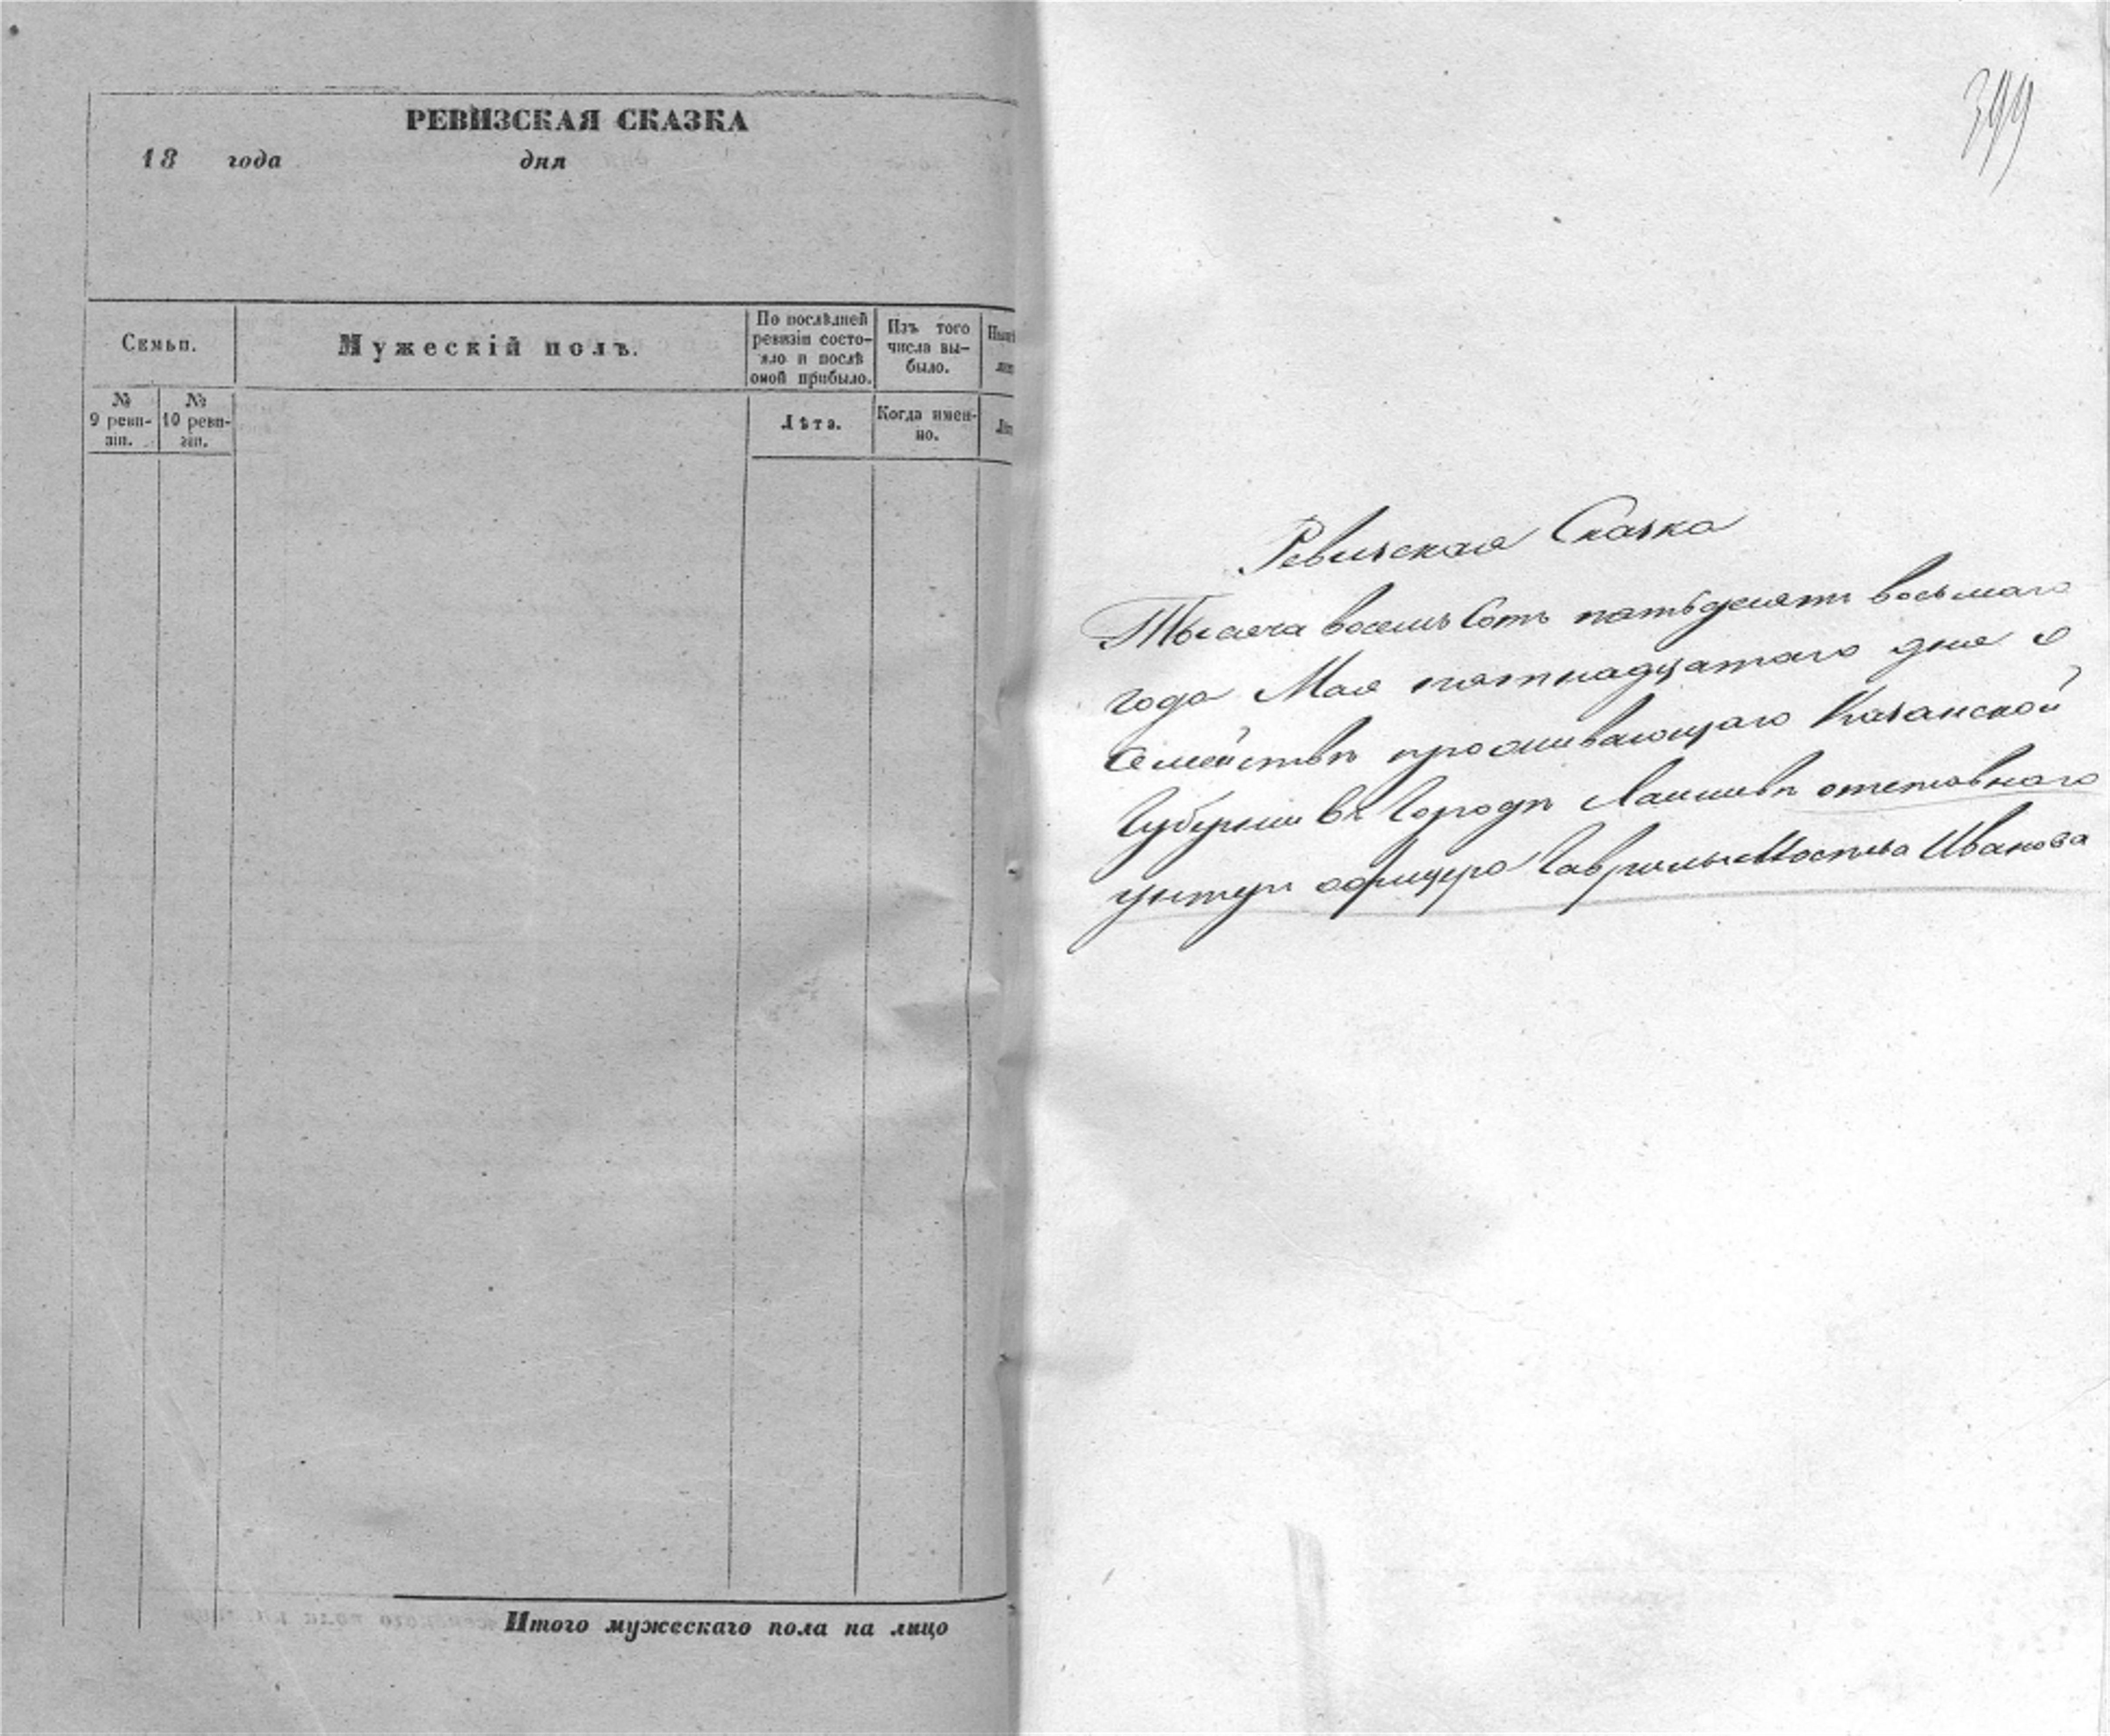 РЕВИЗСКАЯ СКАЗКА
18 года дня
Семьи.
Мужескій полъ.
По послѣдней
ревизіи состо-
яло и послѣ
оной прибыло.
Изъ того
числа вы-
было.
№
9 реви-
зіи.
№
10 реви-
зіи.
Лѣта.
Когда имен-
но.
Итого мужескаго пола на лицо
399
Ревизская Сказка
Тысяча восемь сотъ пятьдесятъ восьмаго
года Мая пятнадцатаго дня о
Семействѣ проживающаго Казанской
Губерніи въ Городѣ Лаишевѣ отставнаго
унтеръ офицера Гаврилы Иванова